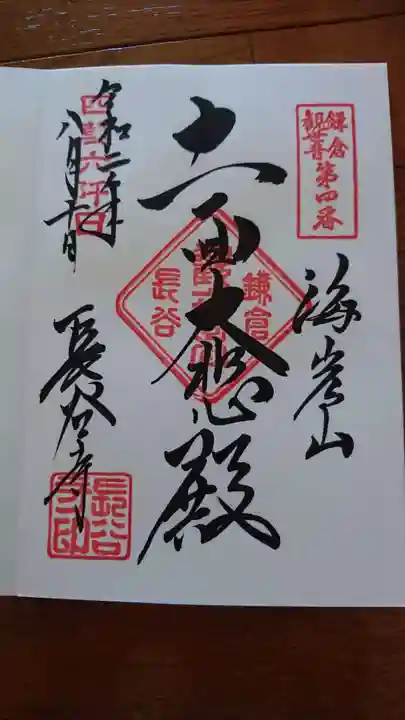 鎌倉
観世音第四番
海光山
十一面大悲殿
鎌倉
長谷
令和二年
八月十六日
四萬六千日
長谷寺
長谷
寺印